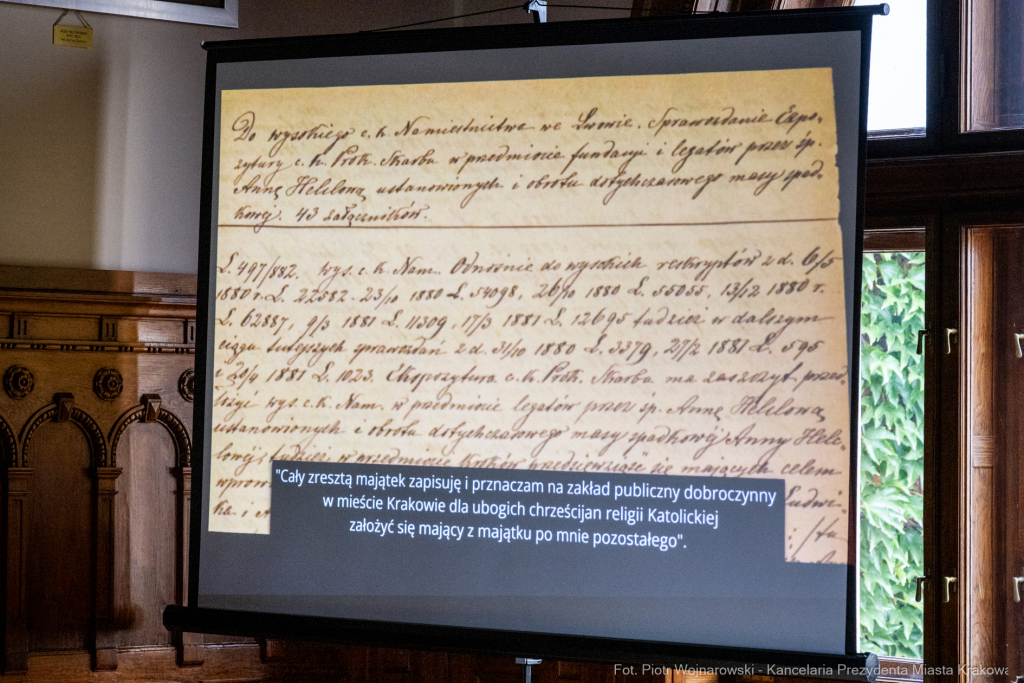 Do wysokiego c. k. Namiestnictwa we Lwowie. Sprawozdanie Expo-
zytury c. k. Prok. Skarbu w przedmiocie fundacyi i legatów przez śp.
Annę Helclową ustanowionych i obrotu dotychczasowego masy spad-
kowej. 43 załączników.
L. 497/882. wys. c. k. Nam. Odnośnie do wysokich reskryptów z d. 6/5
1880 r. L. 22582. 23/10 1880 L. 54098, 26/10 1880 L. 55055, 13/12 1880 r.
L. 62887, 9/3 1881 L. 11309, 17/3 1881 L. 12695 tudzież w dalszym
ciągu tutejszych sprawozdań z d. 31/10 1880 L. 3379, 27/2 1881 L. 595
i 20/4 1881 L. 1023. Ekspozytura c. k. Prok. Skarbu ma zaszczyt przed-
łożyć wys. c. k. Nam. w przedmiocie legatów przez śp. Annę Helclową
ustanowionych i obrotu dotychczasowego masy spadkowej Anny Helc-
lowej, tudzież w przedmiocie kroków przedsięwziąść się mających celem
"Cały zresztą majątek zapisuję i prznaczam na zakład publiczny dobroczynny
w mieście Krakowie dla ubogich chrześcijan religii Katolickiej
założyć się mający z majątku po mnie pozostałego".
Fot. Piotr Wojnarowski - Kancelaria Prezydenta Miasta Krakowa